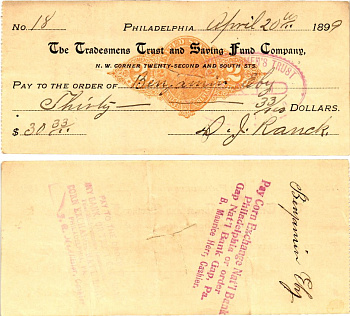 No. 18 Philadelphia April 20th 1899
The Tradesmens Trust and Saving Fund Company,
N. W. CORNER TWENTY-SECOND AND SOUTH STS.
Pay to the order of Benjamin Eby
Thirty 33/100 Dollars.
$ 30 33/100 D. J. Ranck
Benjamin Eby
Pay Corn Exchange Nat'l Bank
Philadelphia or order
Gap Nat'l Bank Gap, Pa.
B. Maurice Herr, Cashier.